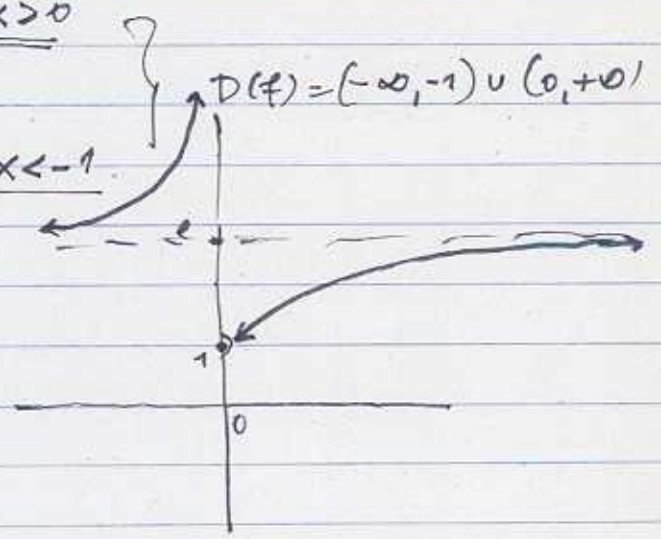 x>0
D(f) = (-∞,-1) ∪ (0,+∞)
x<-1
e
1
0